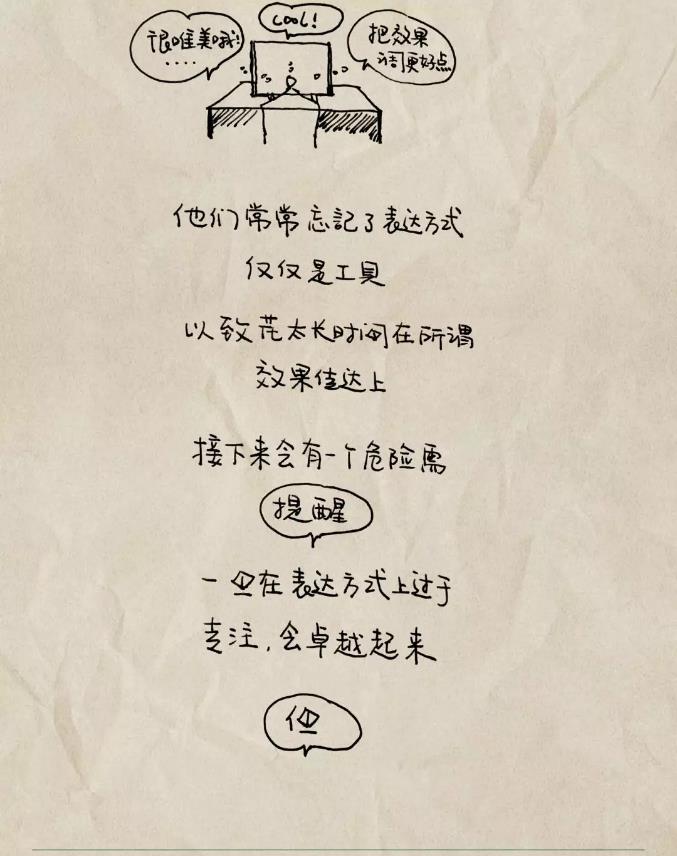 很唯美哦!
....
COOL!
把效果
调更好点
他们常常忘記了表达方式
仅仅是工具
以致花太长时间在所谓
效果传达上
接下来会有一个危险需
提醒
一旦在表达方式上过于
专注,会卓越起来
但